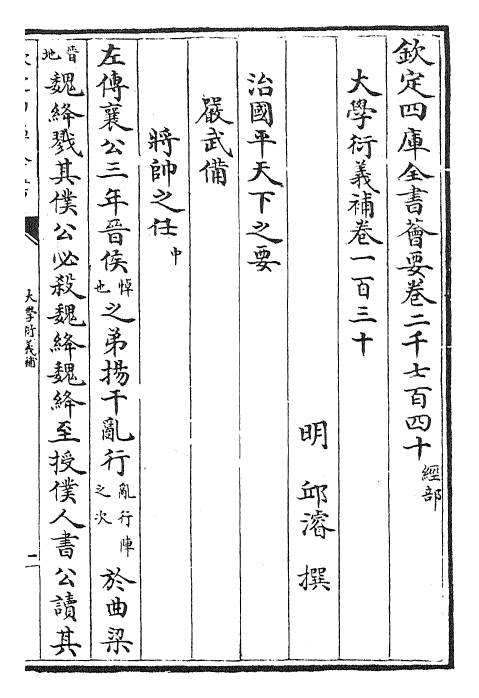 欽定四庫全書薈要卷二千七百四十經部
大學衍義補卷一百三十
明 邱濬 撰
治國平天下之要
嚴武備
將帥之任中
左傳襄公三年晉侯悼也之弟揚干亂行亂行陣之次於曲梁
晉地魏絳戮其僕公必殺魏絳魏絳至授僕人書公讀其
大學衍義補